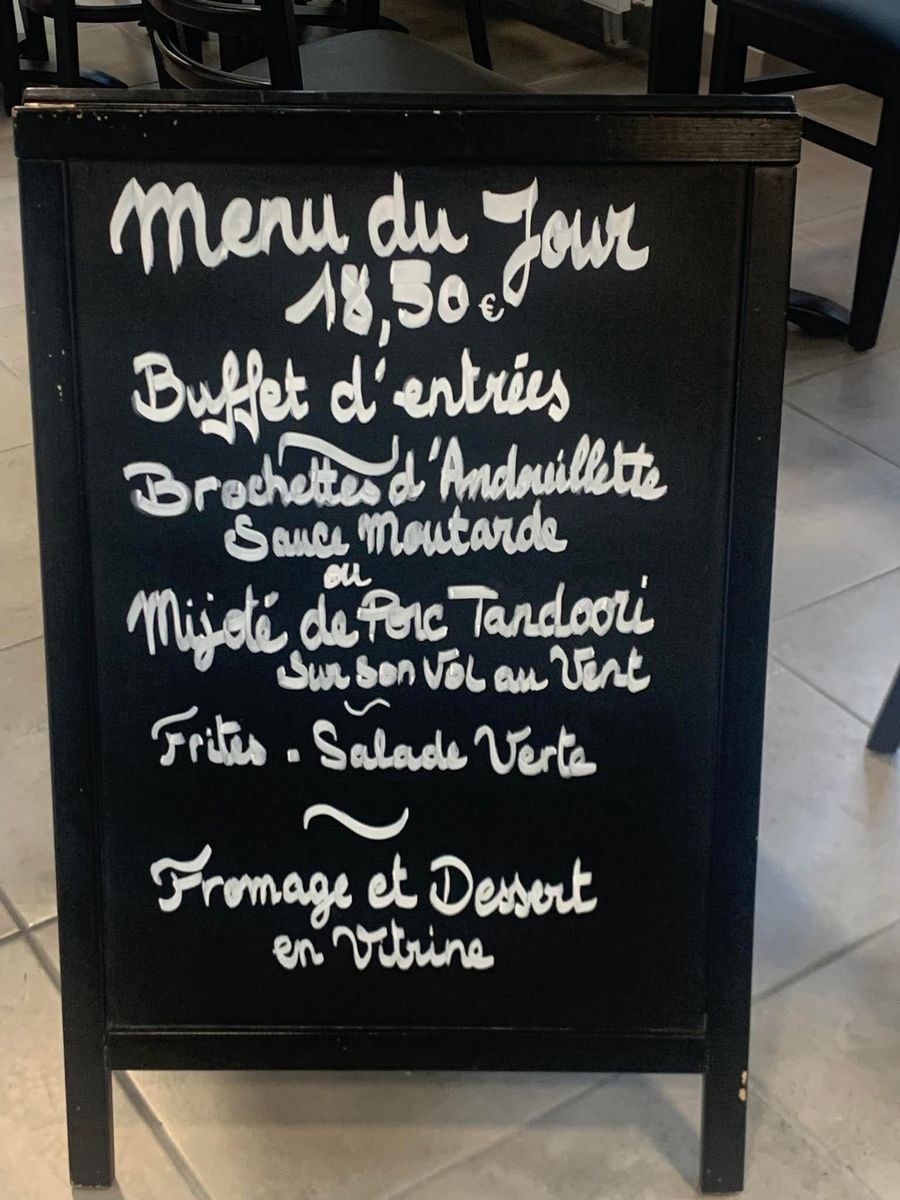 Menu du Jour
18,50 €
Buffet d'entrées
~
Brochettes d'Andouillette
Sauce Moutarde
ou
Mijoté de Porc Tandoori
sur son Vol au Vent
~
Frites . Salade Verte
~
Fromage et Dessert
en Vitrine